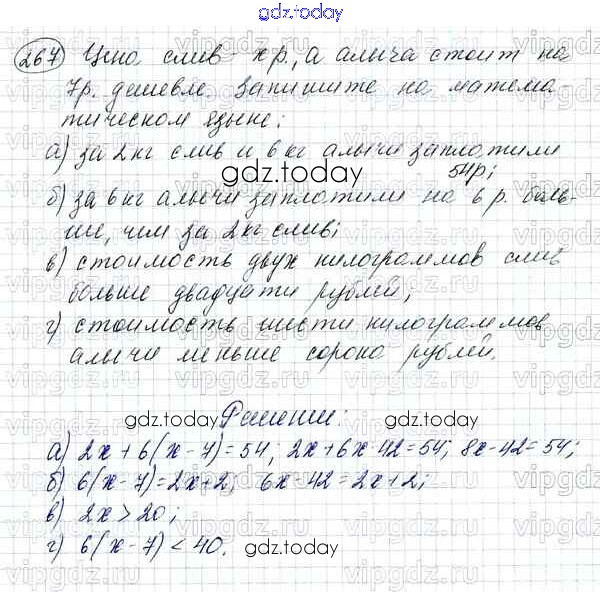 gdz.today
267 Цена слив – х р., а алыча стоит на
7р. дешевле. Запишите на матема
тическом языке:
а) за 2 кг слив и 6 кг алычи заплатили
54р;
gdz.today
б) за 6 кг алычи заплатили на 6 р. боль-
ше, чем за 2 кг слив;
в) стоимость двух килограммов слив
больше двадцати рублей;
г) стоимость шести килограммов
алычи меньше сорока рублей.
Решение:
gdz.today
а) 2х + 6(х - 7) = 54; 2х + 6х - 42 = 54; 8х - 42 = 54;
б) 6(х - 7) = 2х + 2; 6х - 42 = 2х + 2;
в) 2х > 20;
г) 6(х - 7) < 40.
gdz.today